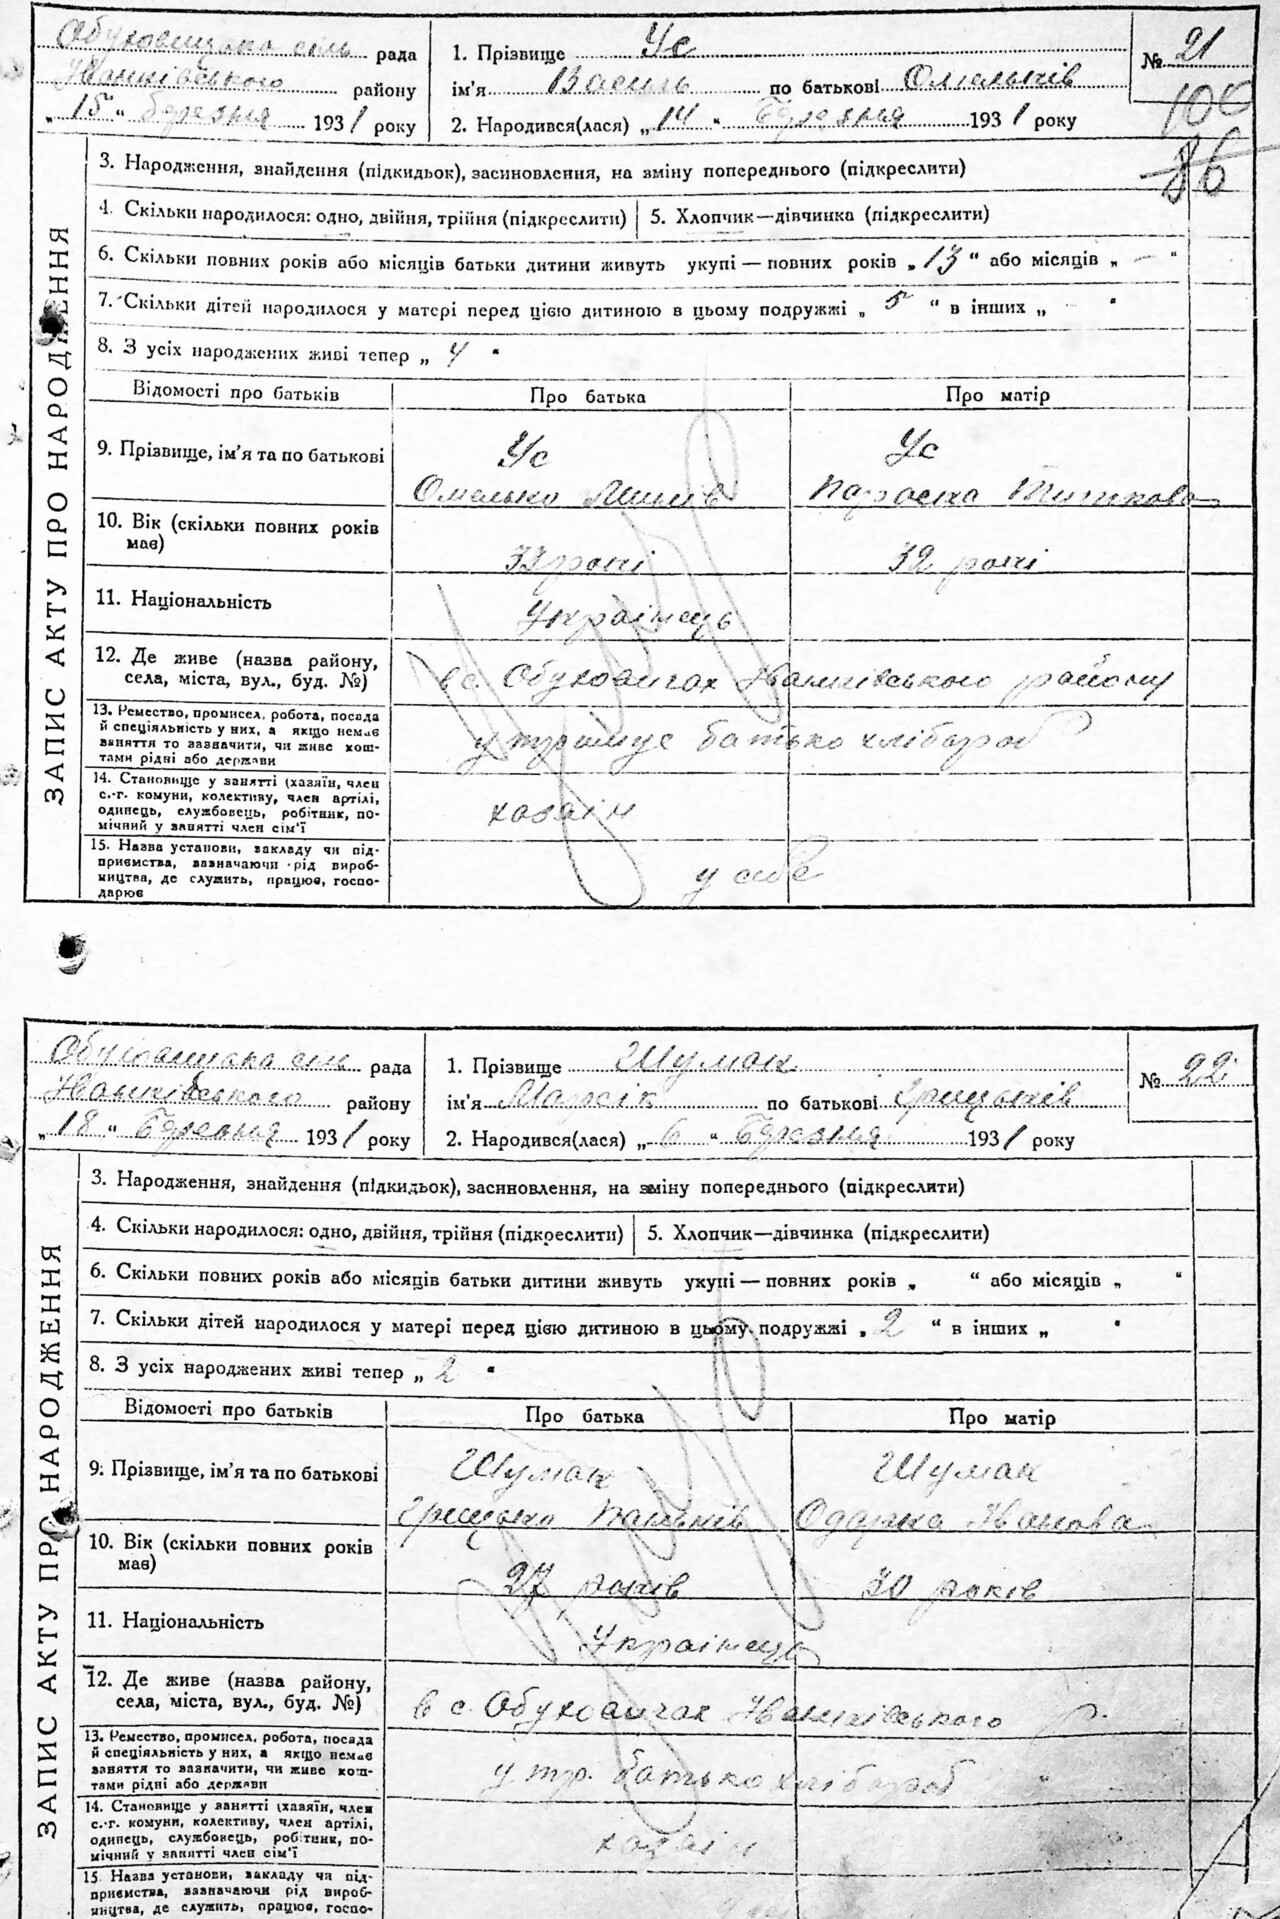 Обуховицька сіль рада
Іванківського району
„ 15 “ березня 1931 року
1. Прізвище Ус
ім'я Василь по батькові Омельків
2. Народився(лася) „ 14 “ Березня 1931 року
№ 21
100
86
ЗАПИС АКТУ ПРО НАРОДЖЕННЯ
3. Народження, знайдення (підкидьок), засиновлення, на зміну попереднього (підкреслити)
4. Скільки народилося: одно, двійня, трійня (підкреслити) 5. Хлопчик—дівчинка (підкреслити)
6. Скільки повних років або місяців батьки дитини живуть укупі — повних років „ 13 “ або місяців „ — “
7. Скільки дітей народилося у матері перед цією дитиною в цьому подружжі „ 5 “ в інших „ “
8. З усіх народжених живі тепер „ 4 “
Відомості про батьків Про батька Про матір
9. Прізвище, ім'я та по батькові
Ус Ус
Омелько Параска Титкова
10. Вік (скільки повних років має)
33 роки 32 роки
11. Національність Українець
12. Де живе (назва району,
села, міста, вул., буд. №)
в с. Обуховичах Іванківського району
13. Ремество, промисел, робота, посада
й спеціяльність у них, а якщо немає
заняття то зазначити, чи живе кош-
тами рідні або держави
утримує батько хлібороб
14. Становище у занятті (хазяїн, член
с.-г. комуни, колективу, член артілі,
одинець, службовець, робітник, по-
мічний у занятті член сім'ї
хазяїн
15. Назва установи, закладу чи під-
приємства, зазначаючи рід вироб-
ництва, де служить, працює, госпо-
дарює
у себе
Обуховицька сіл рада
Іванківського району
„ 18 “ Березня 1931 року
1. Прізвище Шумак
ім'я по батькові Грицьків
2. Народився(лася) „ 6 “ Березня 1931 року
№ 22
ЗАПИС АКТУ ПРО НАРОДЖЕННЯ
3. Народження, знайдення (підкидьок), засиновлення, на зміну попереднього (підкреслити)
4. Скільки народилося: одно, двійня, трійня (підкреслити) 5. Хлопчик—дівчинка (підкреслити)
6. Скільки повних років або місяців батьки дитини живуть укупі — повних років „ “ або місяців „ “
7. Скільки дітей народилося у матері перед цією дитиною в цьому подружжі „ 2 “ в інших „ “
8. З усіх народжених живі тепер „ 2 “
Відомості про батьків Про батька Про матір
9. Прізвище, ім'я та по батькові
Шумак Шумак
Грицько Одарка Іванова
10. Вік (скільки повних років
має)
27 років 30 років
11. Національність Українець
12. Де живе (назва району,
села, міста, вул., буд. №)
в с. Обуховичах Іванківського р.
13. Ремество, промисел, робота, посада
й спеціяльність у них, а якщо немає
заняття то зазначити, чи живе кош-
тами рідні або держави
утр. батько хлібороб
14. Становище у занятті (хазяїн, член
с.-г. комуни, колективу, член артілі,
одинець, службовець, робітник, по-
мічний у занятті член сім'ї
хазяїн
15. Назва установи, закладу чи під-
приємства, зазначаючи рід вироб-
ництва, де служить, працює, госпо-